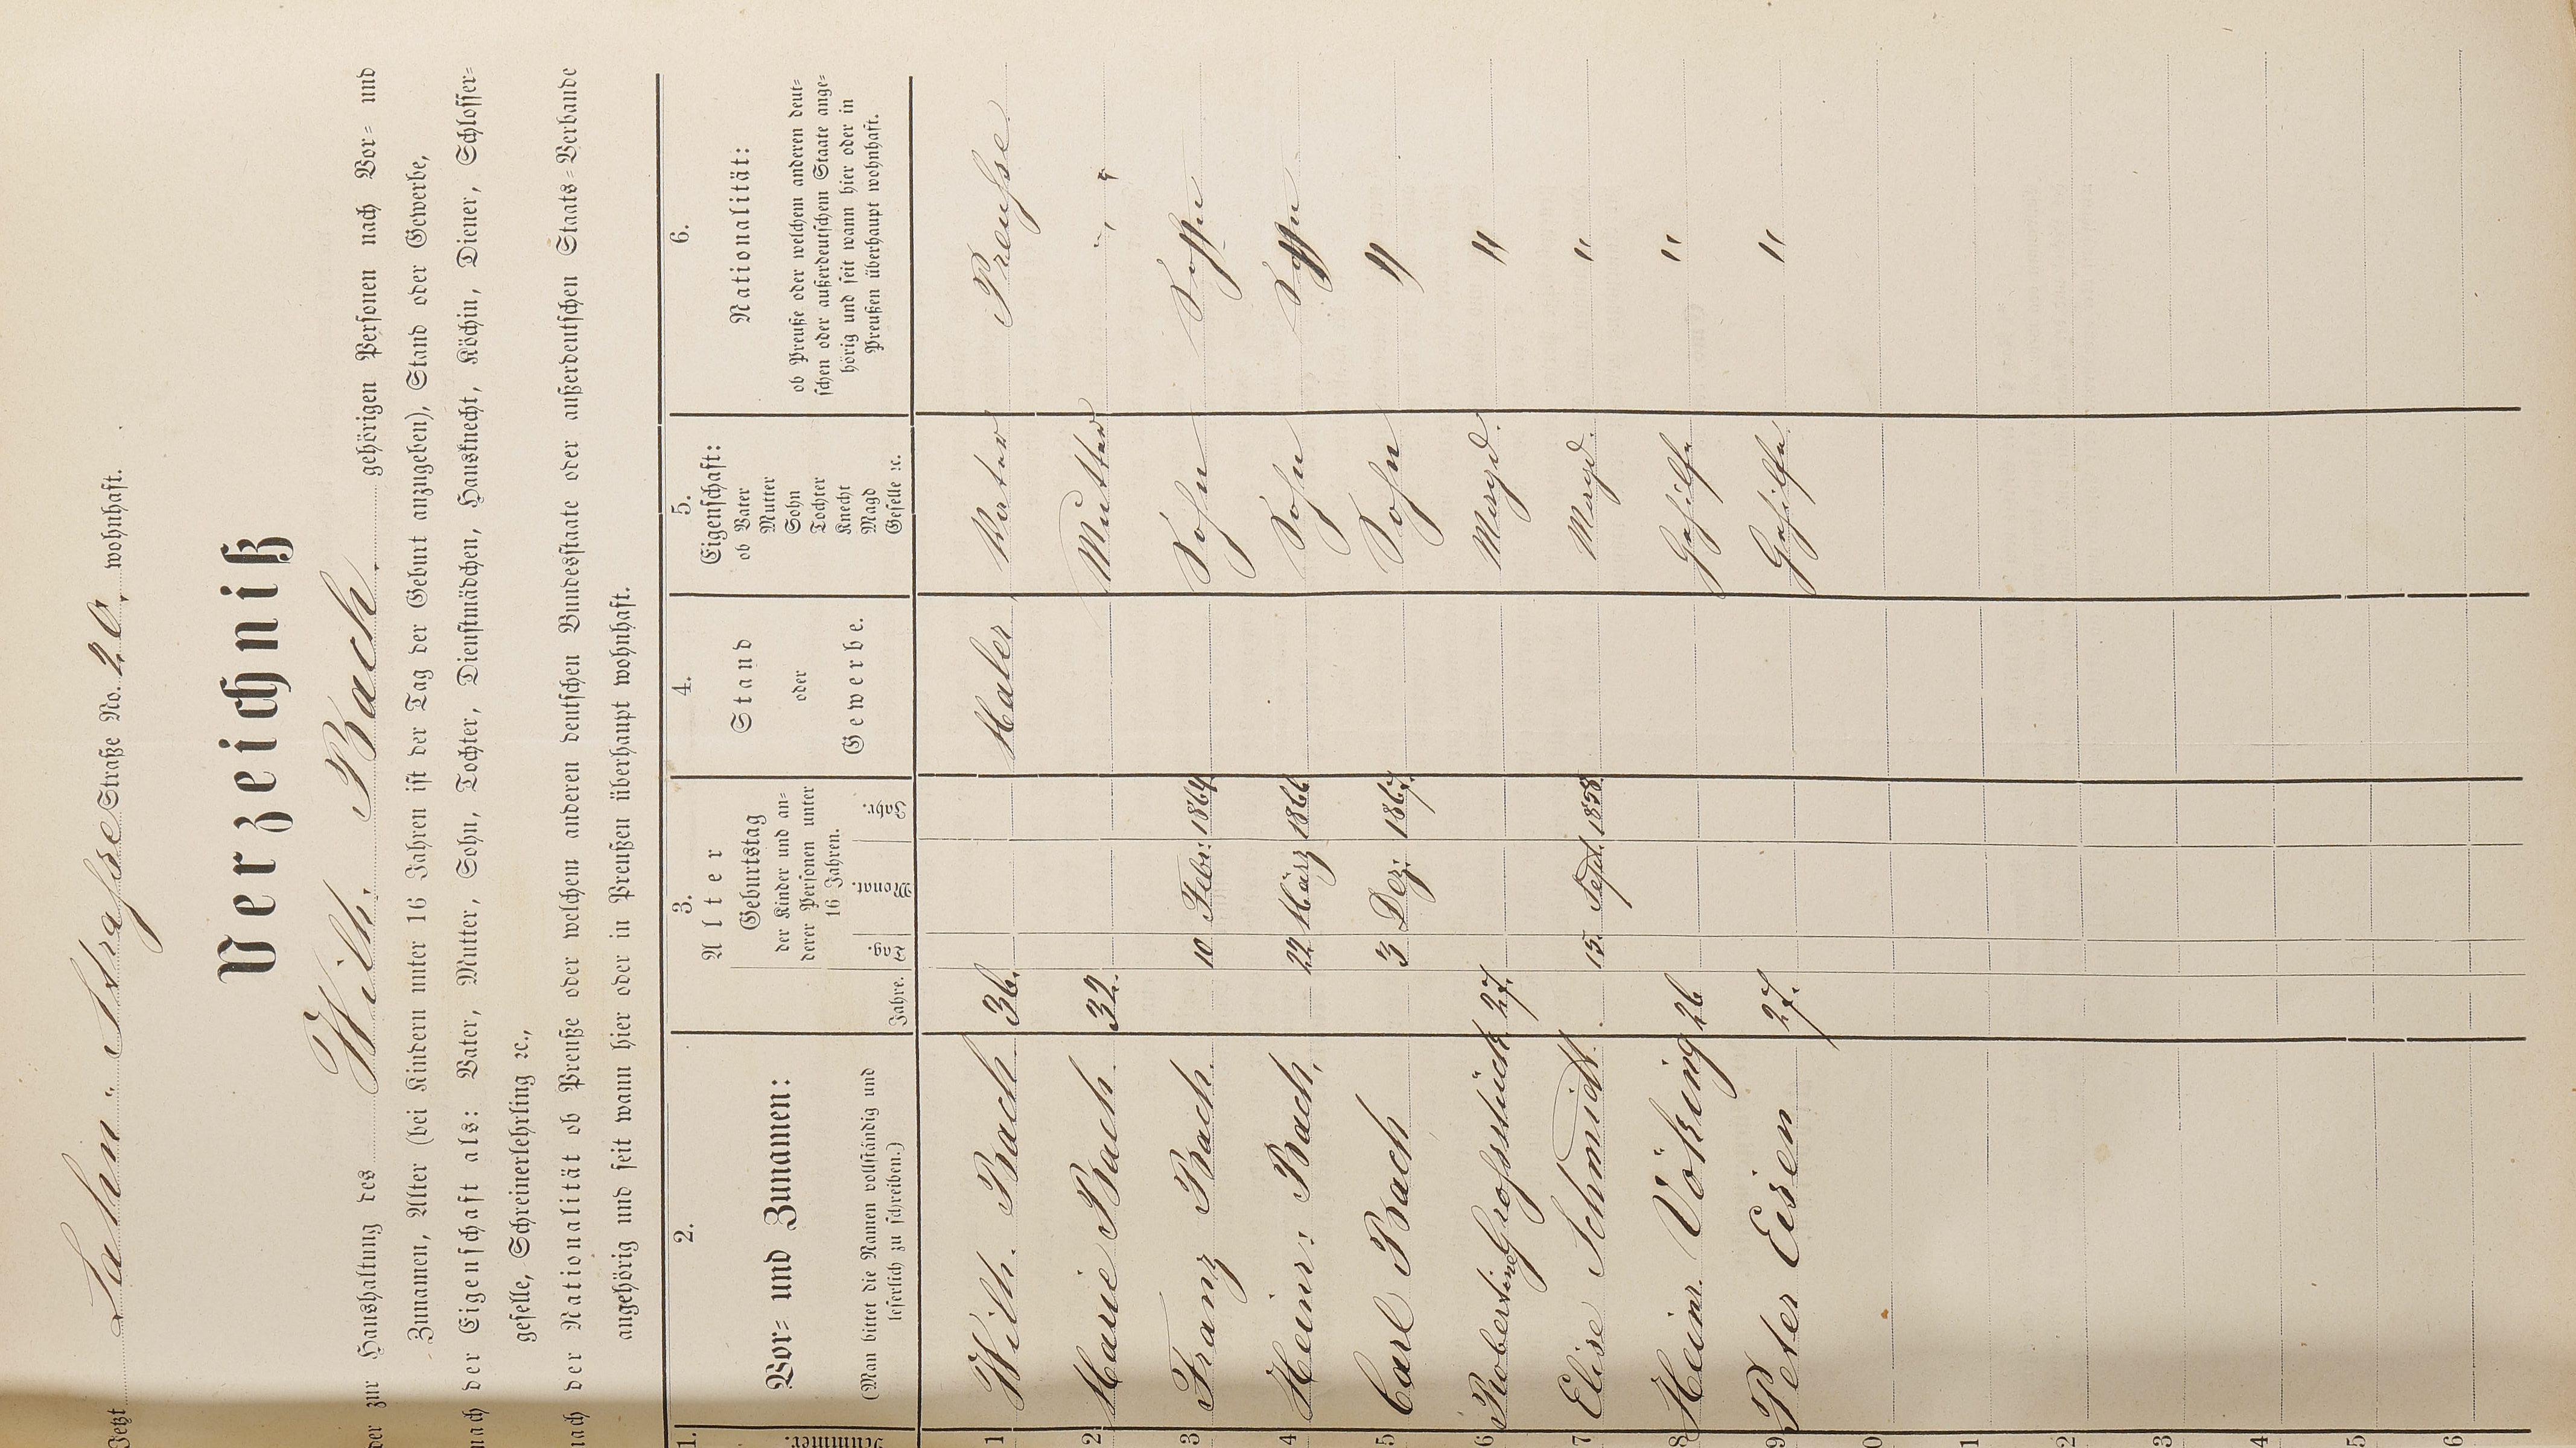 Jetzt Lahn-Strasse Straße No. 20, wohnhaft.
Verzeichniß
der zur Haushaltung des Wilh. Bach. gehörigen Personen nach Vor- und
Zunamen, Alter (bei Kindern unter 16 Jahren ist der Tag der Geburt anzugeben), Stand oder Gewerbe,
nach der Eigenschaft als: Vater, Mutter, Sohn, Tochter, Dienstmädchen, Hausknecht, Köchin, Diener, Schlosser-
geselle, Schreinerlehrling ꝛc.,
nach der Nationalität ob Preuße oder welchem anderen deutschen Bundesstaate oder außerdeutschen Staats-Verbande
angehörig und seit wann hier oder in Preußen überhaupt wohnhaft.
1. 2. 3. 4. 5. 6.
Nummer.
Vor- und Zunamen:
(Man bittet die Namen vollständig und
leserlich zu schreiben.)
Alter
Jahre.
Geburtstag
der Kinder und an-
derer Personen unter
16 Jahren.
Tag. Monat. Jahr.
Stand
oder
Gewerbe.
Eigenschaft:
ob Vater
Mutter
Sohn
Tochter
Knecht
Magd
Geselle ꝛc.
Nationalität:
ob Preuße oder welchem anderen deut-
schen oder außerdeutschem Staate ange-
hörig und seit wann hier oder in
Preußen überhaupt wohnhaft.
1 Wilh. Bach. 36. Maler Vater Preusse
2 Marie Bach. 32. Mutter "
3 Franz Bach. 10 Febr: 1864. Sohn
4 Heinr: Bach, 22 März 1866 Sohn
5 Carl Bach 3 Dez: 1867. Sohn "
6 Robertine Grosstück 27. Magd. "
7 Elise Schmidt. 15. Sept. 1858. Magd. "
8 Heinr. Völking 26 Gehilfe "
9 Peter Eisen 27. Gehilfe "
0
1
2
3
4
5
6